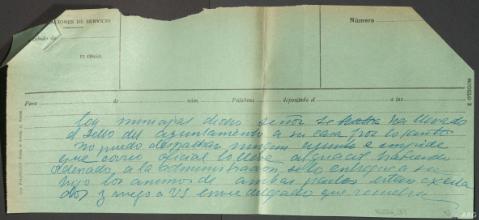 ACIONES DE SERVICIO
Número
Para de núm. Palabras depositado el a las
Ley municipal dicho señor se ha llevado
el sello del ayuntamiento a su casa por lo tanto
no puedo despachar ningun asunto e impide
que correo oficial lo lleve alguacil habiendo
ordenado a la administracion solo entregue a su
hijo los animos de ambas partes estan
y ruego a VS envie delegado que